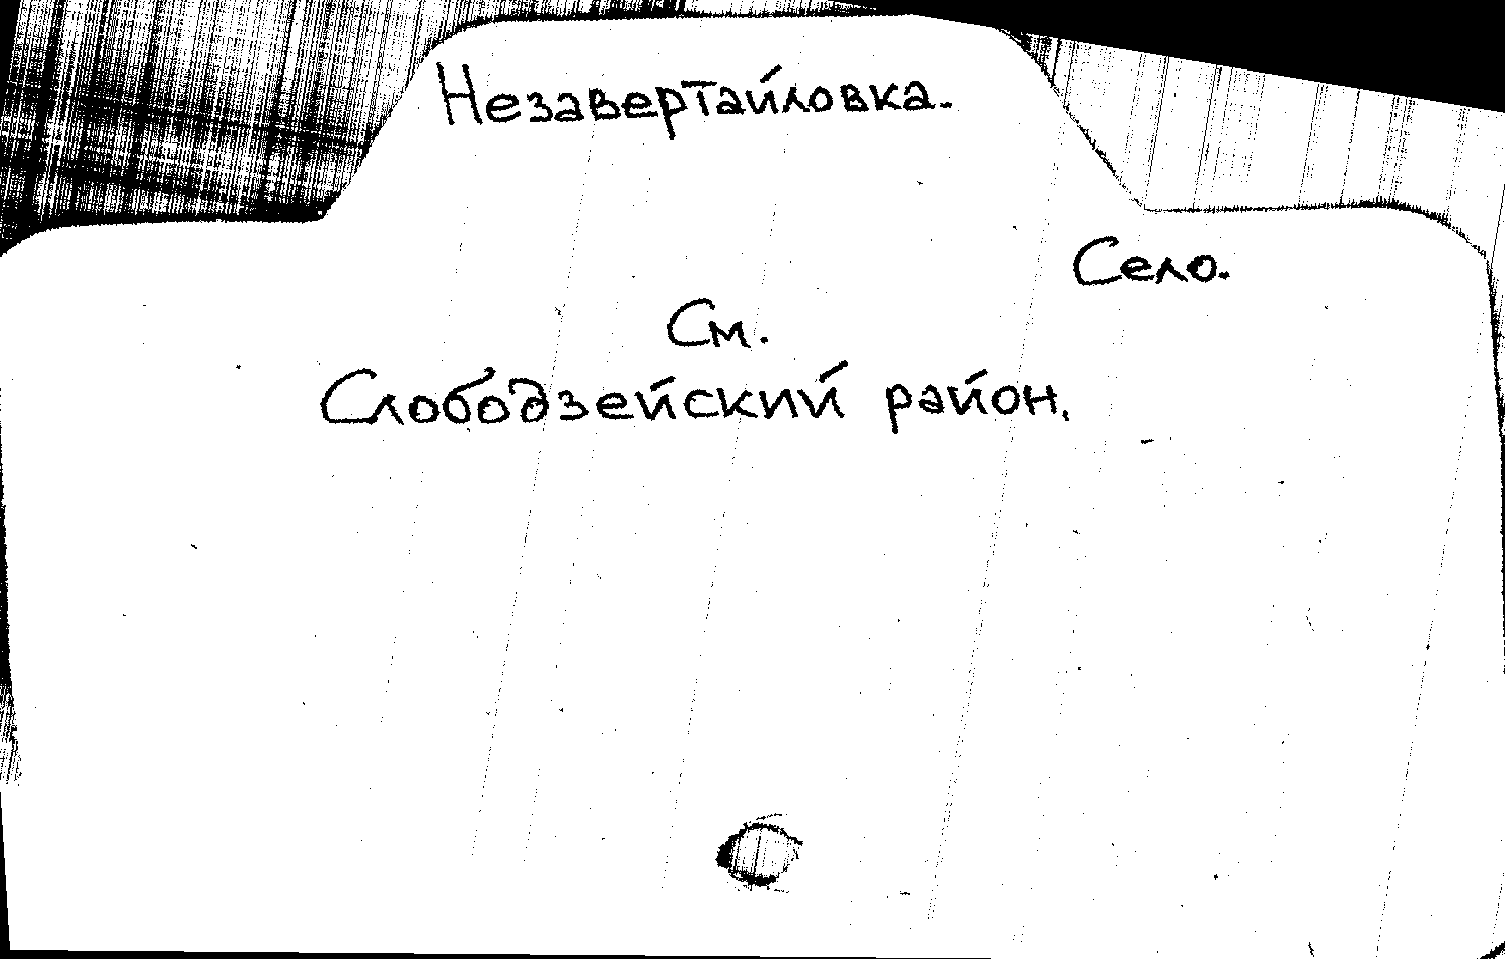 Незавертайловка.
Село.
См.
Слободзейский район.